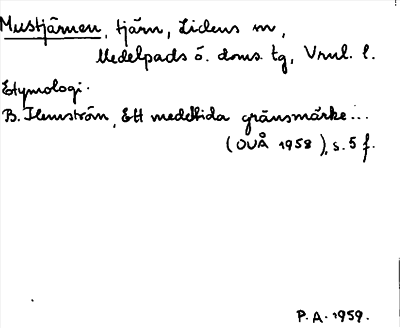 Mustjärnen, tjärn, Lidens sn,
Medelpads ö. doms. tg, Vrnl. l.
Etymologi.
B. Flemström, Ett medeltida gränsmärke...
(OUÅ 1958), s. 5 f.
P.A. 1959.